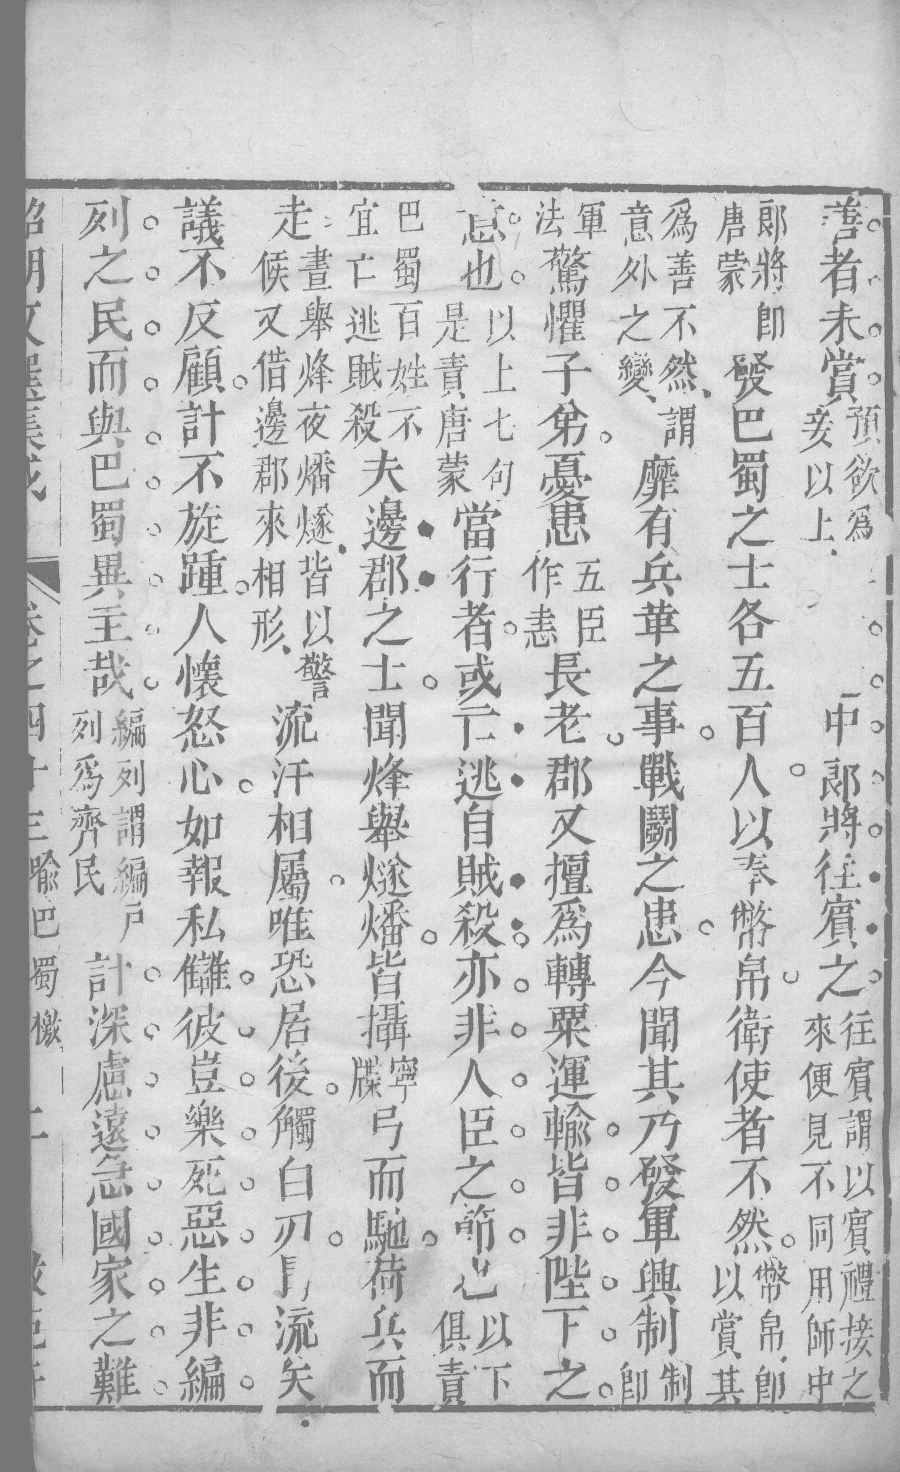 善者未賞預欲爲妾以上中郞將往賓之往賓謂以賓禮接之來便見不同用師中
郞將卽唐蒙發巴蜀之士各五百人以奉幣帛衛使者不然幣帛卽以賞其
爲善不然謂意外之變靡有兵革之事戰鬭之患今聞其乃發軍興制制卽
軍法驚懼子弟憂患五臣作恚長老郡又擅爲轉粟運輸皆非陛下之
意也以上七句是責唐蒙當行者或亡逃自賊殺亦非人臣之節也以下俱責
巴蜀百姓不宜亡逃賊殺夫邊郡之士聞烽舉燧燔皆攝寧牒弓而馳荷兵而
走晝舉烽夜燔燧皆以警候又借邊郡來相形流汗相屬唯恐居後觸白刃冒流矢
議不反顧計不旋踵人懷怒心如報私讎彼豈樂死惡生非編
列之民而與巴蜀異主哉編列謂編戶列爲齊民計深慮遠急國家之難
文選集成 卷之四十三 喻巴蜀檄